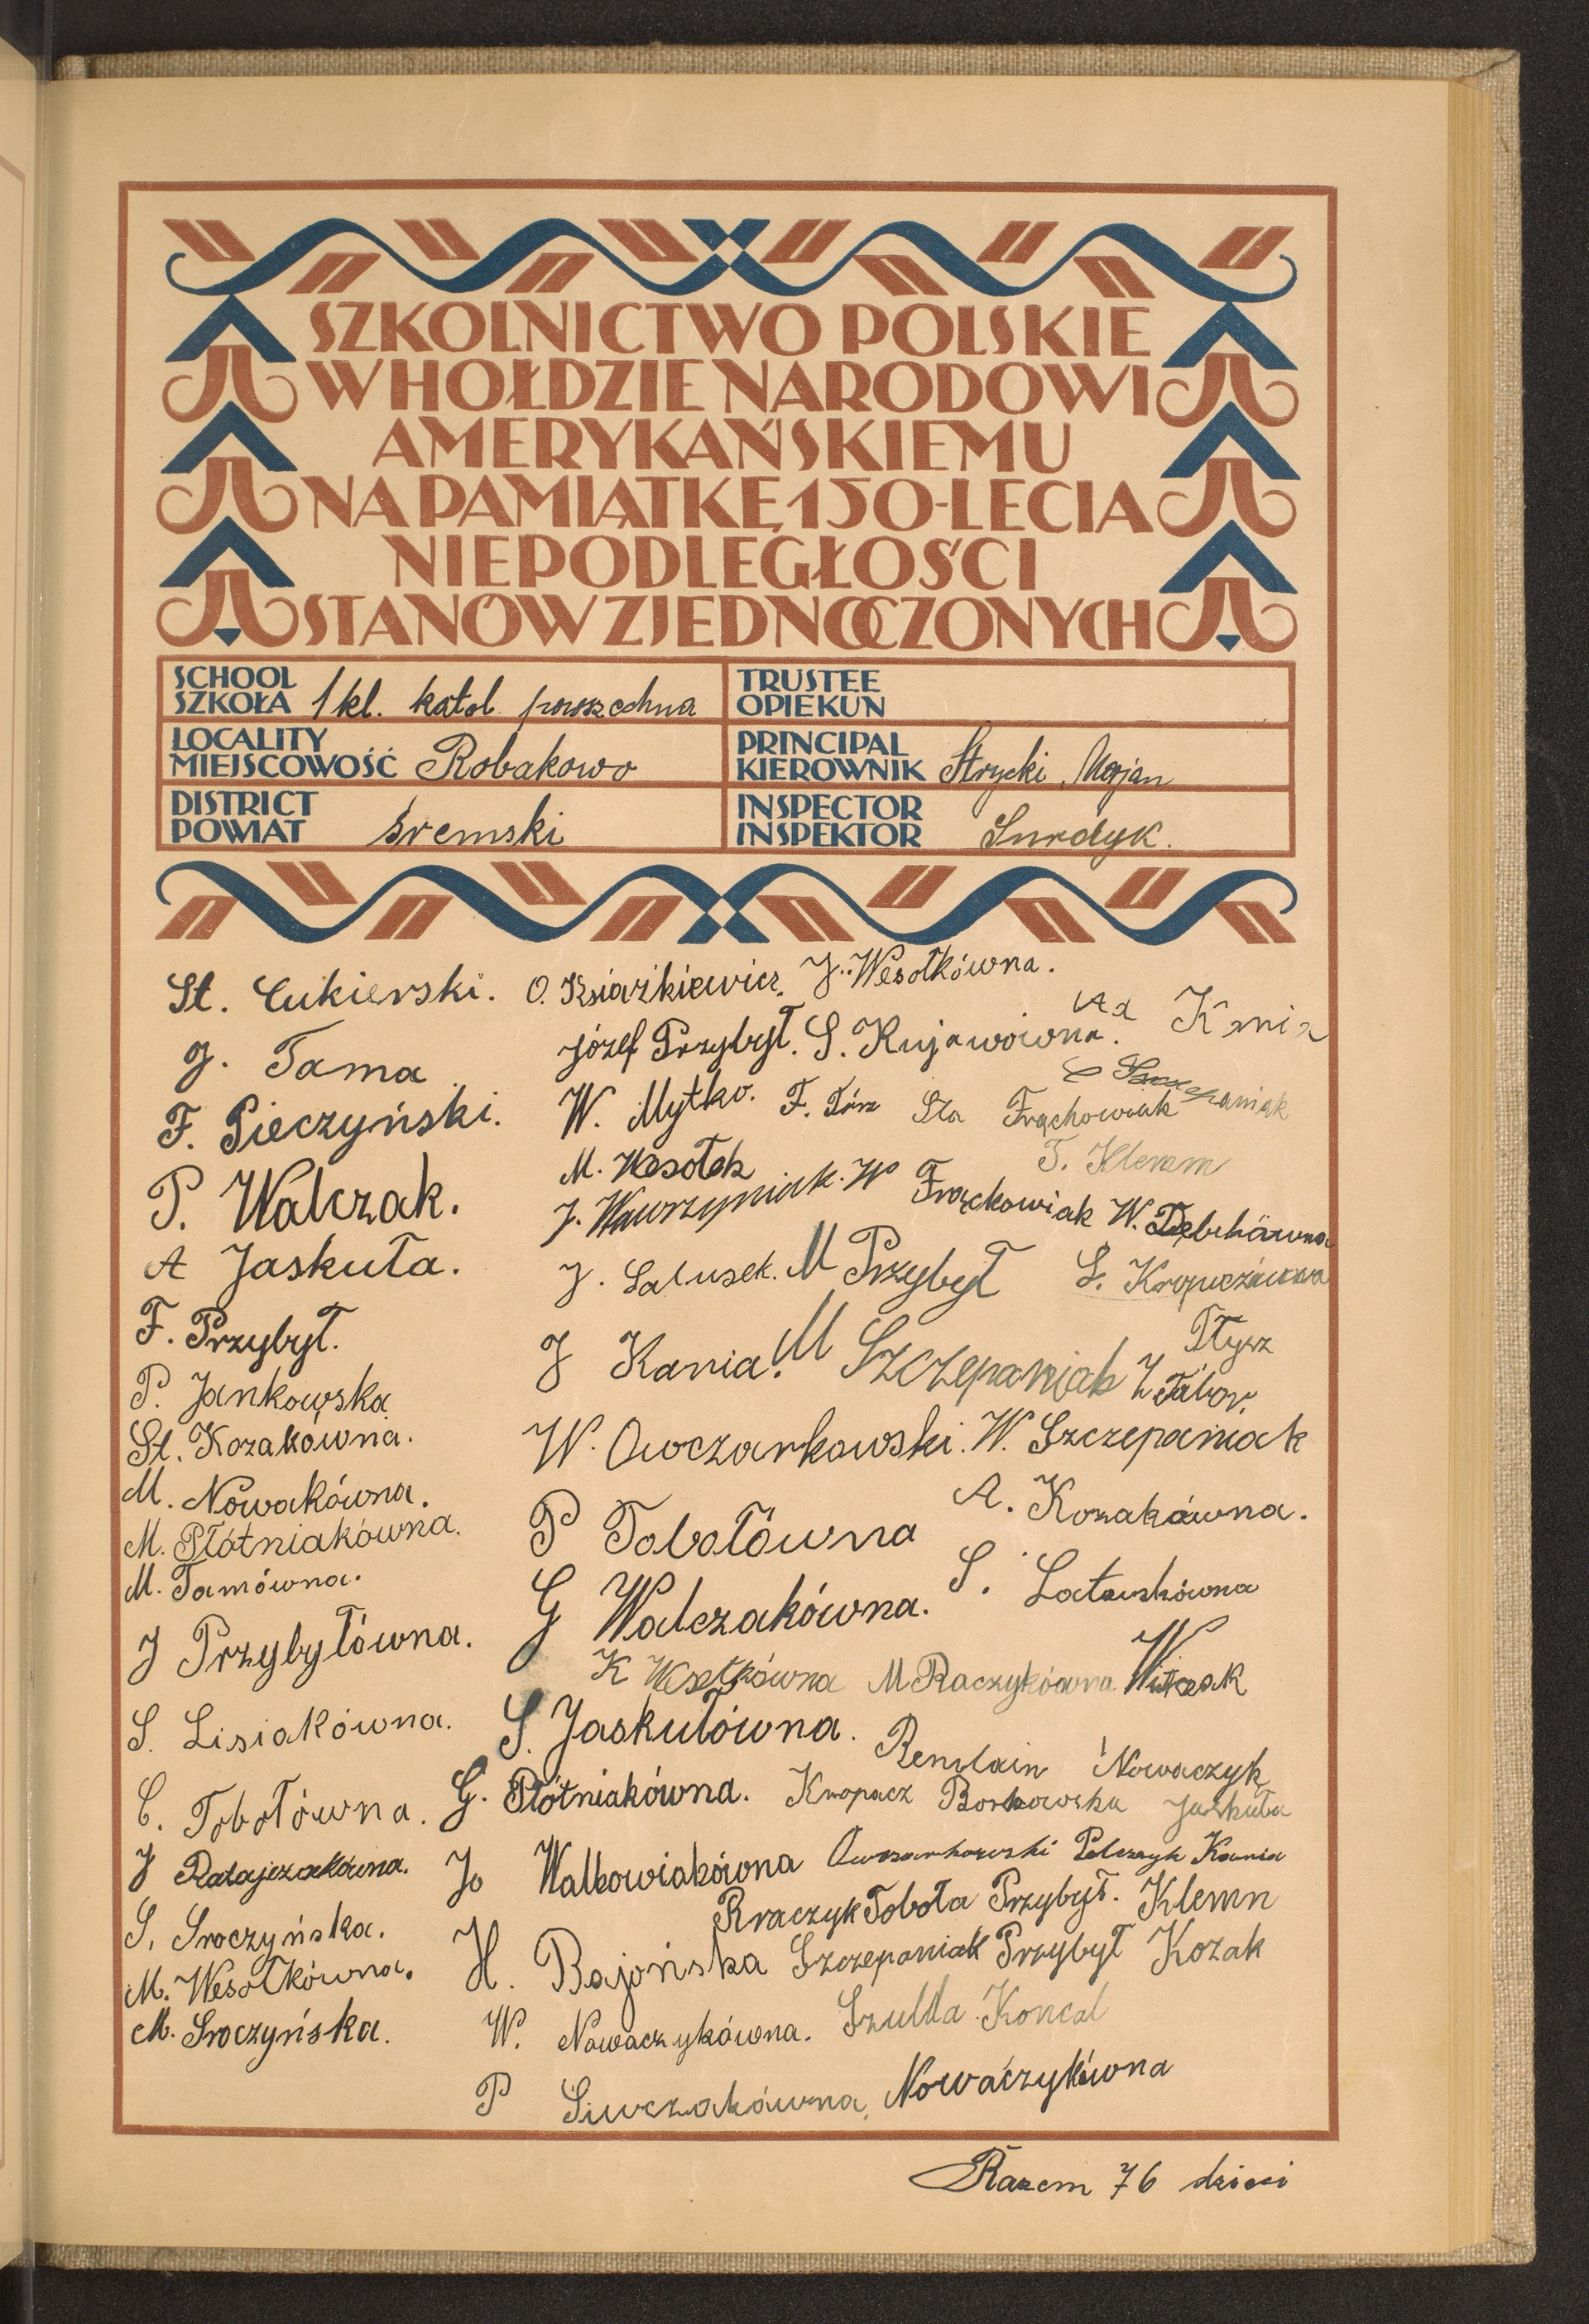 SZKOLNICTWO POLSKIE
W HOŁDZIE NARODOWI
AMERYKAŃSKIEMU
NA PAMIĄTKĘ 150-LECIA
NIEPODLEGŁOŚCI
STANÓW ZJEDNOCZONYCH
SCHOOL
SZKOŁA 1 kl. katol. powszechna
TRUSTEE
OPIEKUN
LOCALITY
MIEJSCOWOŚĆ Robakowo
PRINCIPAL
KIEROWNIK Strycki Marjan
DISTRICT
POWIAT śremski
INSPECTOR
INSPEKTOR Surdyk.
St. Cukierski.
J. Tama
F. Pieczyński.
P. Walczak.
A Jaskuła.
F. Przybył.
P. Jankowska
St. Kozakówna.
M. Nowakówna.
M. Płótniakówna.
M. Tamówna.
J Przybyłówna.
S. Lisiakówna.
C. Tobołówna.
J Ratajczakówna.
S. Sroczyńska.
M. Wesołkówna.
M. Sroczyńska.
O. Książkiewicz. J. Wesołkówna.
Józef Przybył. S. Kujawówna. Kania
W. Mytko. F. Sta Frąckowiak Szczepaniak
M. Wesołek
J. Wawrzyniak. W Frąckowiak W.
J. M Przybył S.
J Kania. M Szczepaniak
W. Owczarkowski. W. Szczepaniak
P Tobołówna A. Kozakówna.
G Walczakówna. S.
K M Raczykówna Witczak
S. Jaskułówna.
Nowaczyk
G. Płótniakówna. Kropacz Borkowska Jaskuła
Jo Walkowiakówna Owczarkowski Kania
Raczyk Toboła Przybył. Klemn
H. Bajońska Szczepaniak Przybył Kozak
W. Nowaczykówna. Koncal
P Siwczakówna, Nowaczykówna
Razem 76 dzieci